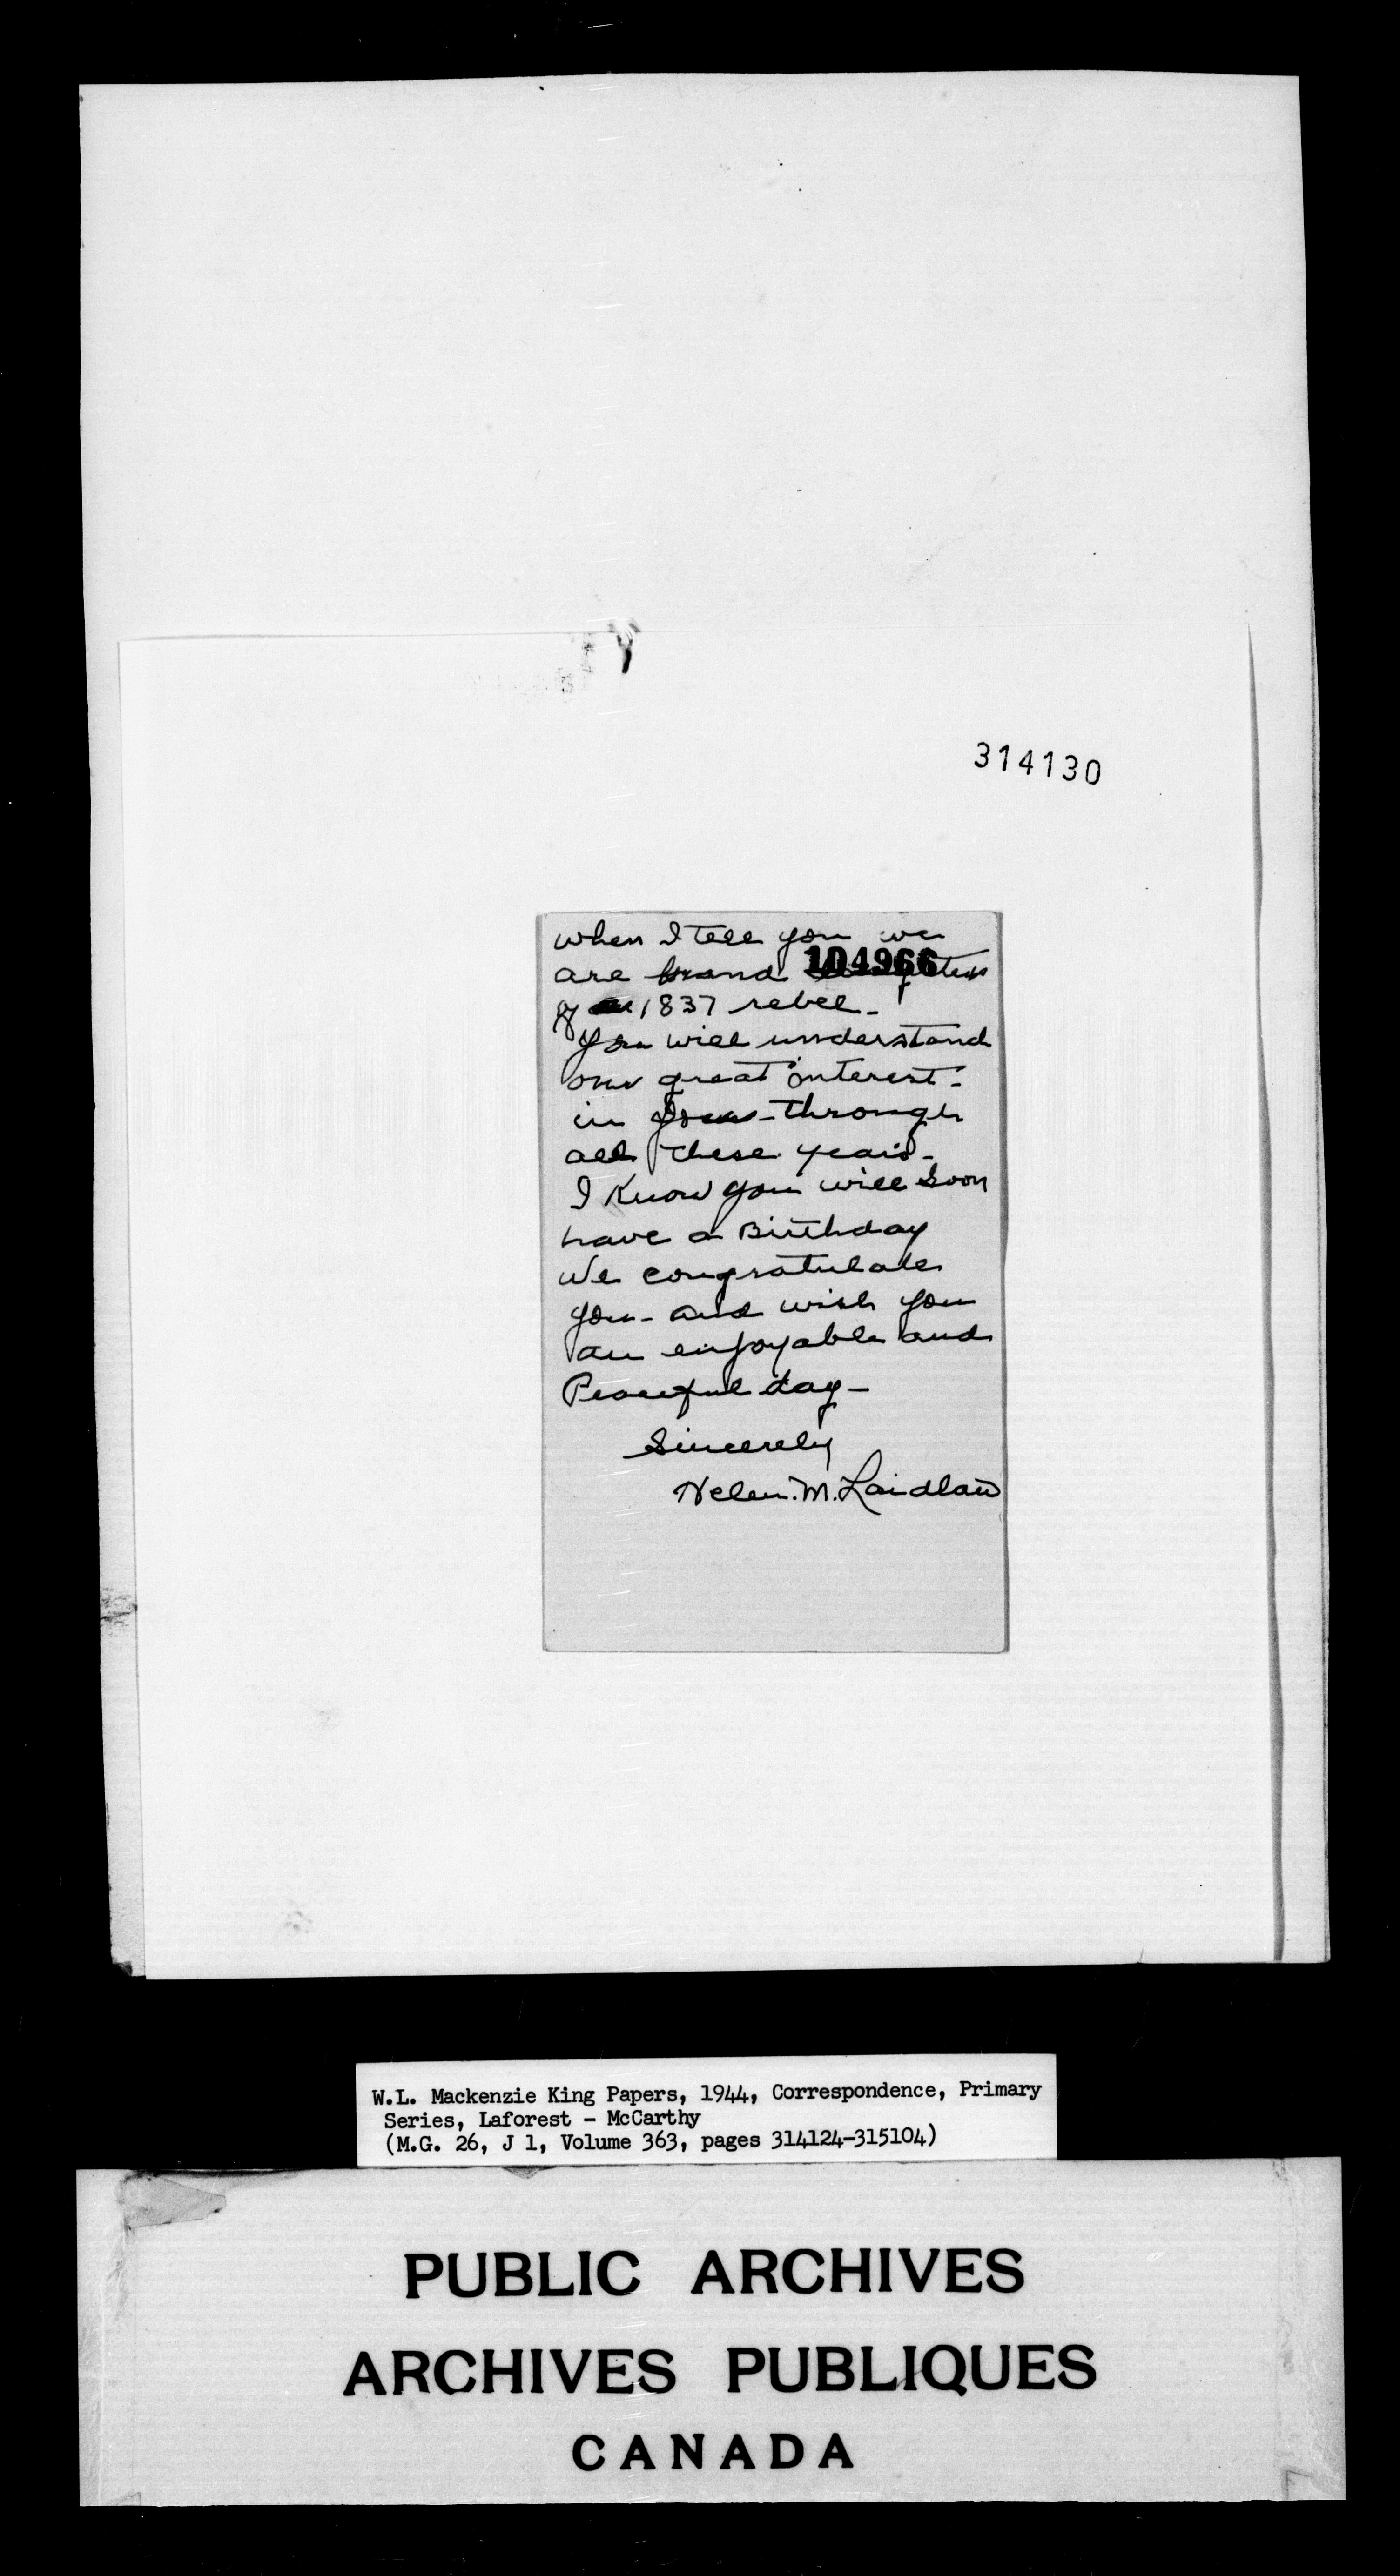 314130
when I tell you we
104966
are grand
of 1837 rebel -
You will understand
our great interest -
in you - through
all these years -
I Know you will soon
have a Birthday
We congratulate
you - and wish you
an enjoyable and
Peaceful day -
Sincerely
Helen. M. Laidlaw
W.L. Mackenzie King Papers, 1944, Correspondence, Primary
Series, Laforest - McCarthy
(M.G. 26, J 1, Volume 363, pages 314124-315104)
PUBLIC ARCHIVES
ARCHIVES PUBLIQUES
CANADA